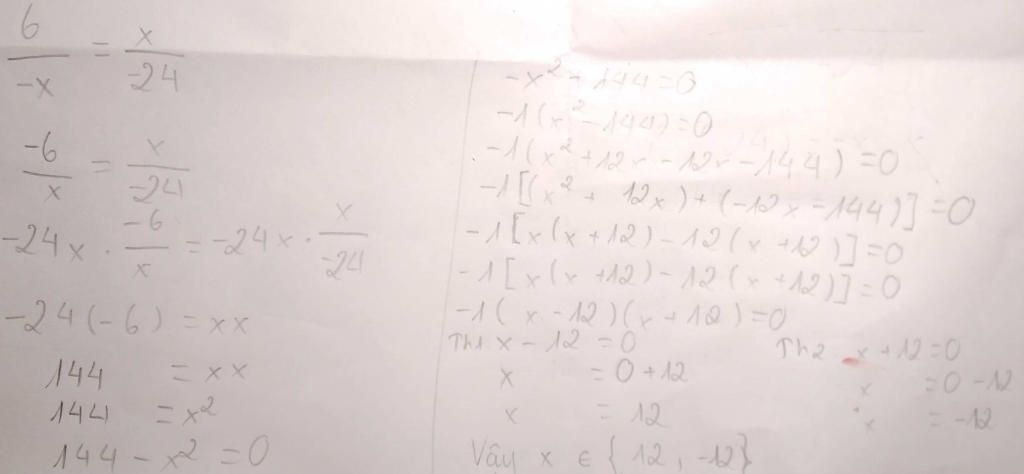 6/-x = x/-24
-6/x = x/-24
-24x · -6/x = -24x · x/-24
-24(-6) = xx
144 = xx
144 = x²
144 - x² = 0
-x² + 144 = 0
-1(x² - 144) = 0
-1(x² + 12x - 12x - 144) = 0
-1[(x² + 12x) + (-12x - 144)] = 0
-1[x(x + 12) - 12(x + 12)] = 0
-1[x(x + 12) - 12(x + 12)] = 0
-1(x - 12)(x + 12) = 0
Th1 x - 12 = 0
x = 0 + 12
x = 12
Th2 x + 12 = 0
x = 0 - 12
x = -12
Vậy x ∈ {12, -12}